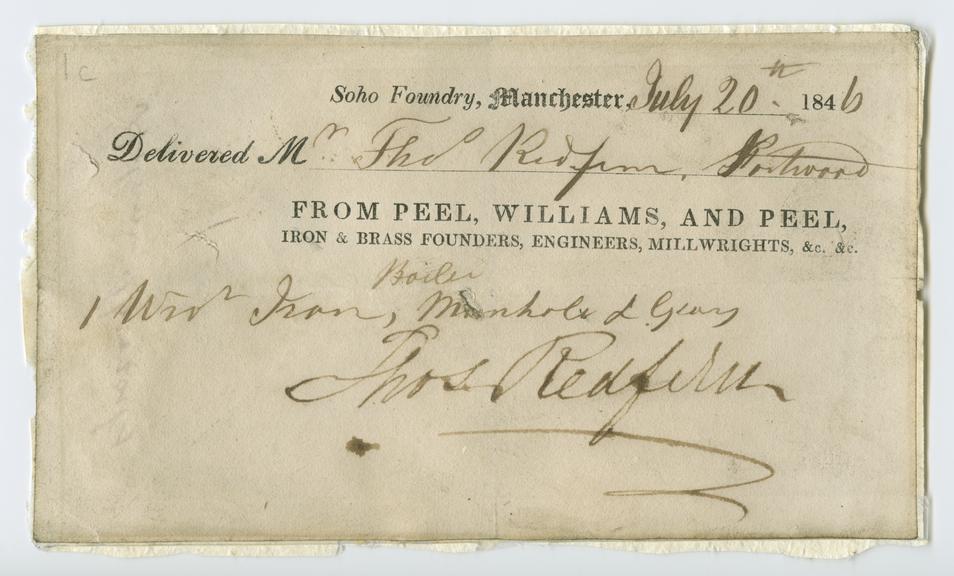 1 c
Soho Foundry, Manchester, July 20th 1846
Delivered Mr Thos Redfern, Portwood
FROM PEEL, WILLIAMS, AND PEEL,
IRON & BRASS FOUNDERS, ENGINEERS, MILLWRIGHTS, &c. &c.
Boiler
1 Wrot Iron, Manhole & Gear
Thos Redfern